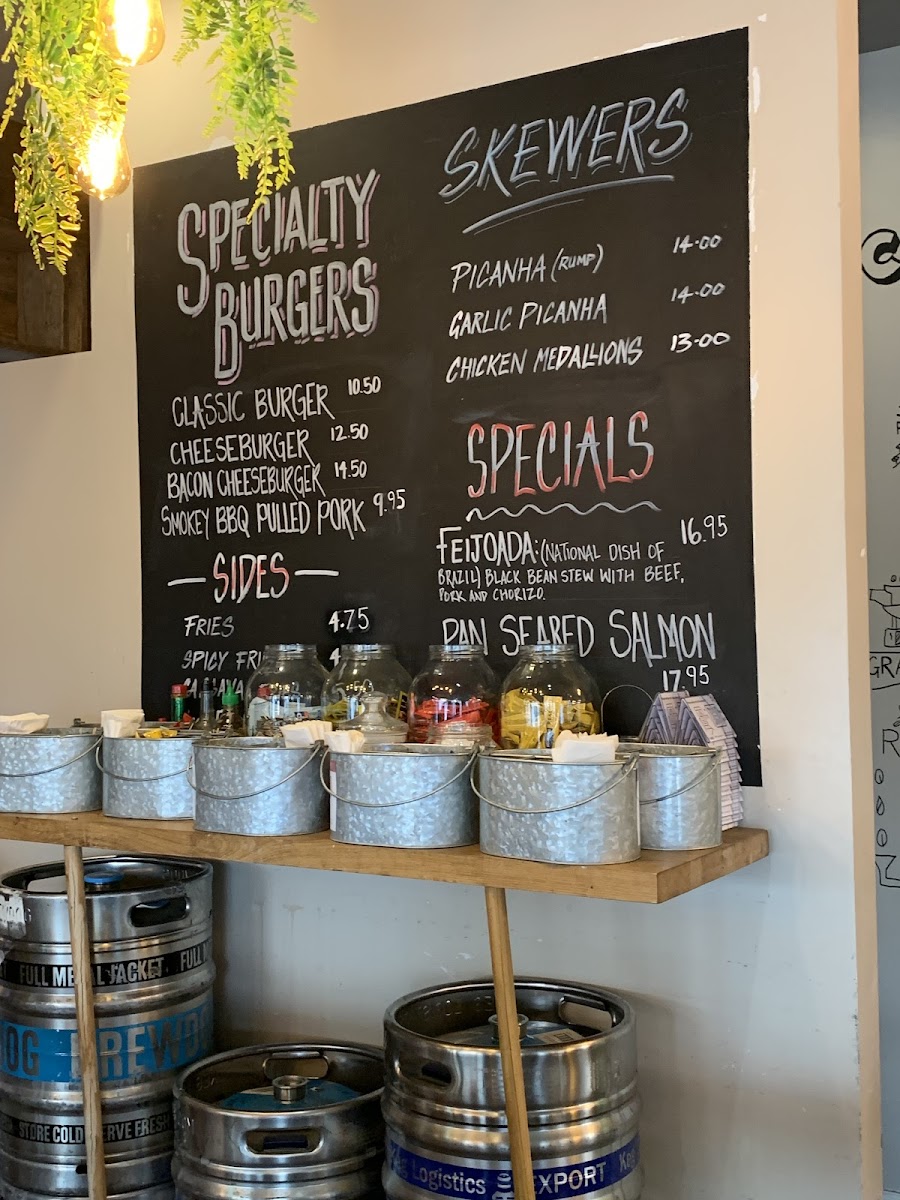 SPECIALTY
BURGERS
CLASSIC BURGER 10.50
CHEESEBURGER 12.50
BACON CHEESEBURGER 14.50
SMOKEY BBQ PULLED PORK 9.95
— SIDES —
FRIES 4.75
SPICY
SKEWERS
PICANHA (RUMP) 14-00
GARLIC PICANHA 14-00
CHICKEN MEDALLIONS 13-00
SPECIALS
FEIJOADA: (NATIONAL DISH OF 16.95
BRAZIL) BLACK BEAN STEW WITH BEEF,
PORK AND CHORIZO.
PAN SEARED SALMON
17.95
FULL METAL JACKET FULL
BREWDOG
STORE COLD SERVE FRESH
Logistics EXPORT